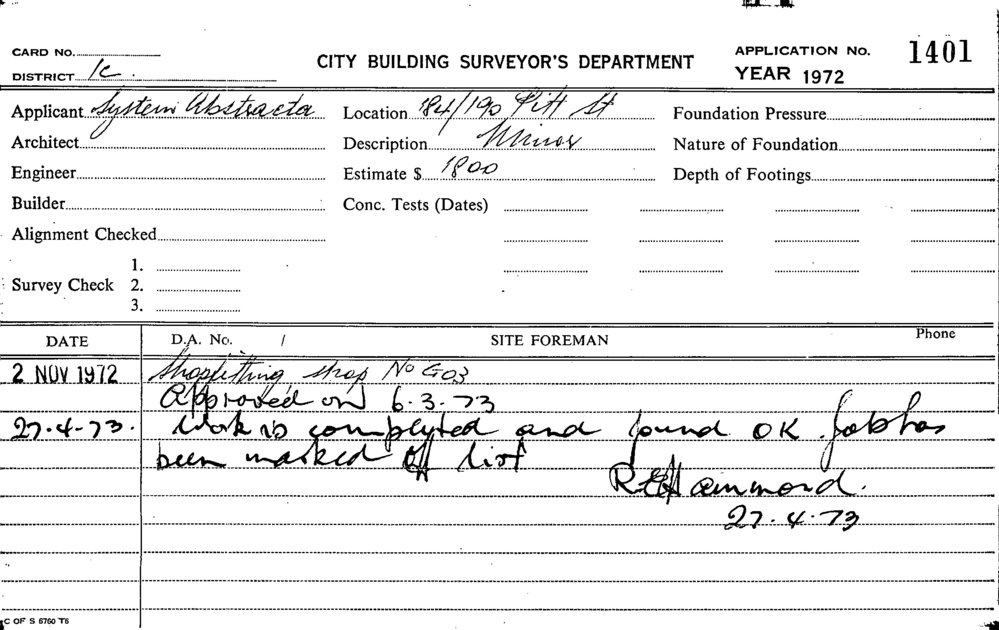 CARD NO.
DISTRICT 1c.
CITY BUILDING SURVEYOR'S DEPARTMENT
APPLICATION NO. 1401
YEAR 1972
Applicant System Abstracta Location 184/190 Pitt St Foundation Pressure
Architect Description Minor Nature of Foundation
Engineer Estimate $ 1800 Depth of Footings
Builder Conc. Tests (Dates)
Alignment Checked
1.
Survey Check 2.
3.
DATE D.A. No. / SITE FOREMAN Phone
2 NOV 1972 Shopfitting shop No G03
Approved on 6.3.73
27.4.73. Work is completed and found OK. Job has
been marked off list
R E Hammond.
27.4.73
C OF S 6760 T6